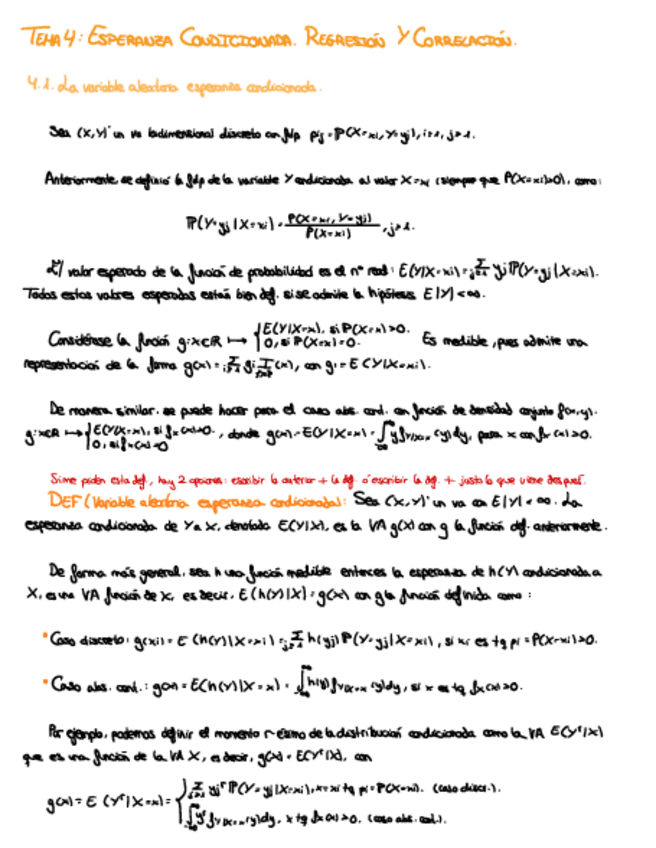 TEMA 4: ESPERANZA CONDICIONADA. REGRESIÓN Y CORRELACIÓN.
4.1. La variable aleatoria esperanza condicionada.
Sea (X,Y)' un va bidimensional discreto con fdp pij = P(X=xi, Y=yj), i≥1, j≥1.
Anteriormente se definió la fdp de la variable Y condicionada al valor X=xi (siempre que P(X=xi)>0), como:
P(Y=yj | X=xi) = P(X=xi, Y=yj) / P(X=xi), j≥1.
El valor esperado de la función de probabilidad es el nº real: E(Y|X=xi) = Σj≥1 yj P(Y=yj | X=xi).
Todos estos valores esperados están bien def. si se admite la hipótesis E|Y|<∞.
Considérese la función g: x∈R ↦ { E(Y|X=x), si P(X=x)>0. Es medible, pues admite una
0, si P(X=x)=0.
representación de la forma g(x) = Σ gi I (x), con gi = E(Y|X=xi).
De manera similar, se puede hacer para el caso abs. cont. con función de densidad conjunta f(x,y).
g: x∈R ↦ { E(Y|X=x), si fx(x)>0. , donde g(x) = E(Y|X=x) = ∫ y fY|X=x (y) dy, para x con fx(x)>0.
0, si fx(x)=0
Si me piden esta def., hay 2 opciones: escribir lo anterior + la def. ó escribir la def. + justo lo que viene después.
DEF (Variable aleatoria esperanza condicionada): Sea (X,Y)' un va con E|Y|<∞. La
esperanza condicionada de Y a X, denotada E(Y|X), es la VA g(X) con g la función def. anteriormente.
De forma más general, sea h una función medible entonces la esperanza de h(Y) condicionada a
X, es una VA función de X, es decir, E(h(Y)|X) = g(X) con g la función definida como:
• Caso discreto: g(xi) = E(h(Y)|X=xi) = Σj≥1 h(yj) P(Y=yj | X=xi), si xi es tq pi = P(X=xi)>0.
• Caso abs. cont.: g(x) = E(h(Y)|X=x) = ∫ h(y) fY|X=x (y) dy, si x es tq fx(x)>0.
Por ejemplo, podemos definir el momento r-ésimo de la distribución condicionada como la VA E(Y^r|X)
que es una función de la VA X, es decir, g(X) = E(Y^r|X), con
g(x) = E(Y^r|X=x) = { Σj≥1 yj^r P(Y=yj | X=xi), x=xi tq pi = P(X=xi). (caso discr.).
∫ y^r fY|X=x (y) dy, x tq fx(x)>0. (caso abs. cont.).